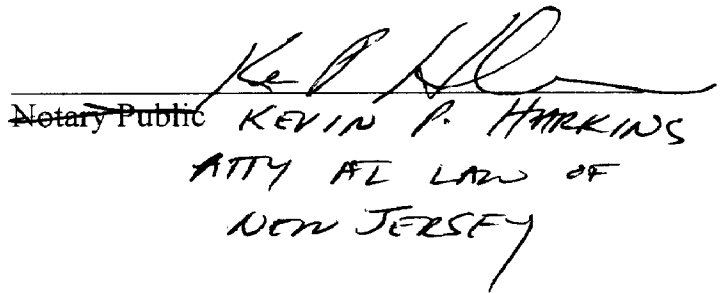 Ke P H
Notary Public KEVIN P. HARKINS
ATTY AT LAW OF
NEW JERSEY